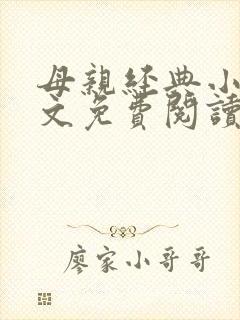 母親經典小
文免費閱讀
廖家小哥哥